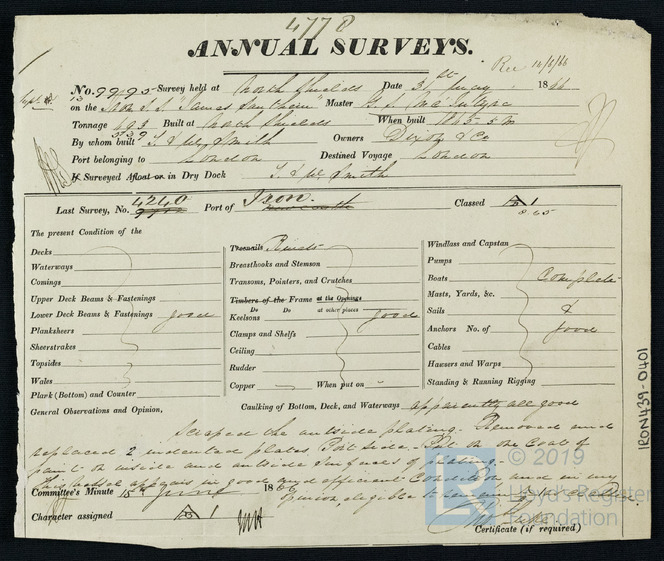 4778
ANNUAL SURVEYS.
Rec 14/6/66
No. 9995 Survey held at North Shields Date 31st May 1866
on the Iron S.S. "James Southern" Master
Tonnage 693 Built at North Shields When built 1865. 5 m
By whom built T. & W. Smith Owners Dixon & Co
Port belonging to London Destined Voyage London
If Surveyed Afloat or in Dry Dock T. & W. Smith
Last Survey, No. 4240 Port of Iron. Classed A 1
8.65
The present Condition of the
Decks
Waterways
Comings
Upper Deck Beams & Fastenings
Lower Deck Beams & Fastenings good
Planksheers
Sheerstrakes
Topsides
Wales
Plank (Bottom) and Counter
Treenails Rivets
Breasthooks and Stemson
Transoms, Pointers, and Crutches
Timbers of the Frame at the Openings
Do Do at other places
Keelsons good
Clamps and Shelfs
Ceiling
Rudder
Copper When put on
Windlass and Capstan
Pumps
Boats Complete
Masts, Yards, &c.
Sails &
Anchors No. of good
Cables
Hawsers and Warps
Standing & Running Rigging
General Observations and Opinion,
Caulking of Bottom, Deck, and Waterways apparently all good
Scraped the outside plating. Removed and
replaced 2 indented plates Port side. Put on one Coat of
paint on inside and outside surfaces of plating.
This vessel appears in good and efficient Condition and in my
opinion, eligible to
Committee's Minute 15th June 1866
Character assigned A 1
Certificate (if required)
IRON439-0401
© 2019
LR
Lloyd's Register
Foundation